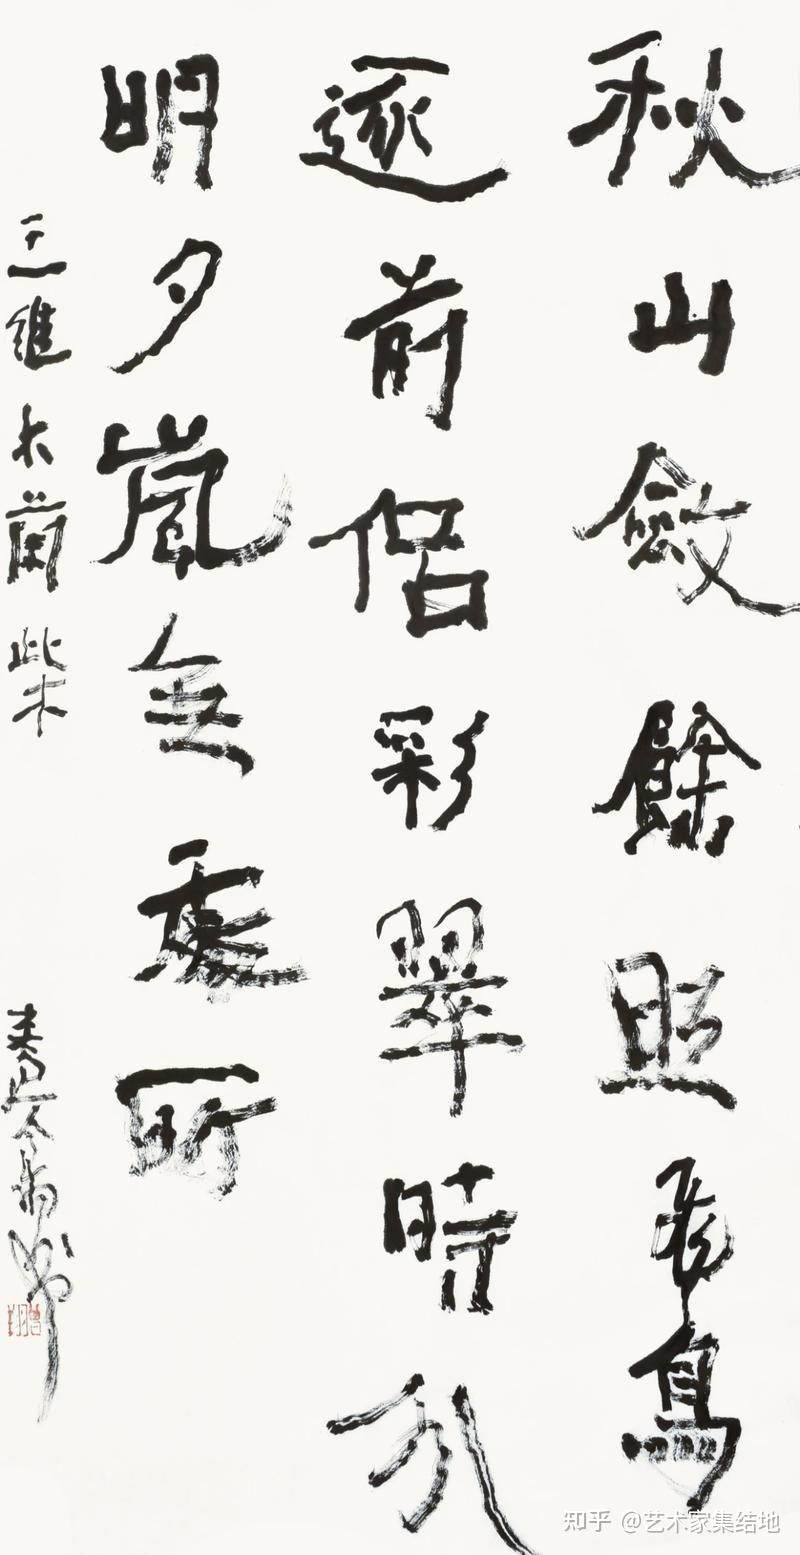 秋山斂餘照飛鳥
逐前侶彩翠時分
明夕嵐無處所
王維木蘭柴
曾翔
知乎 @艺术家集结地